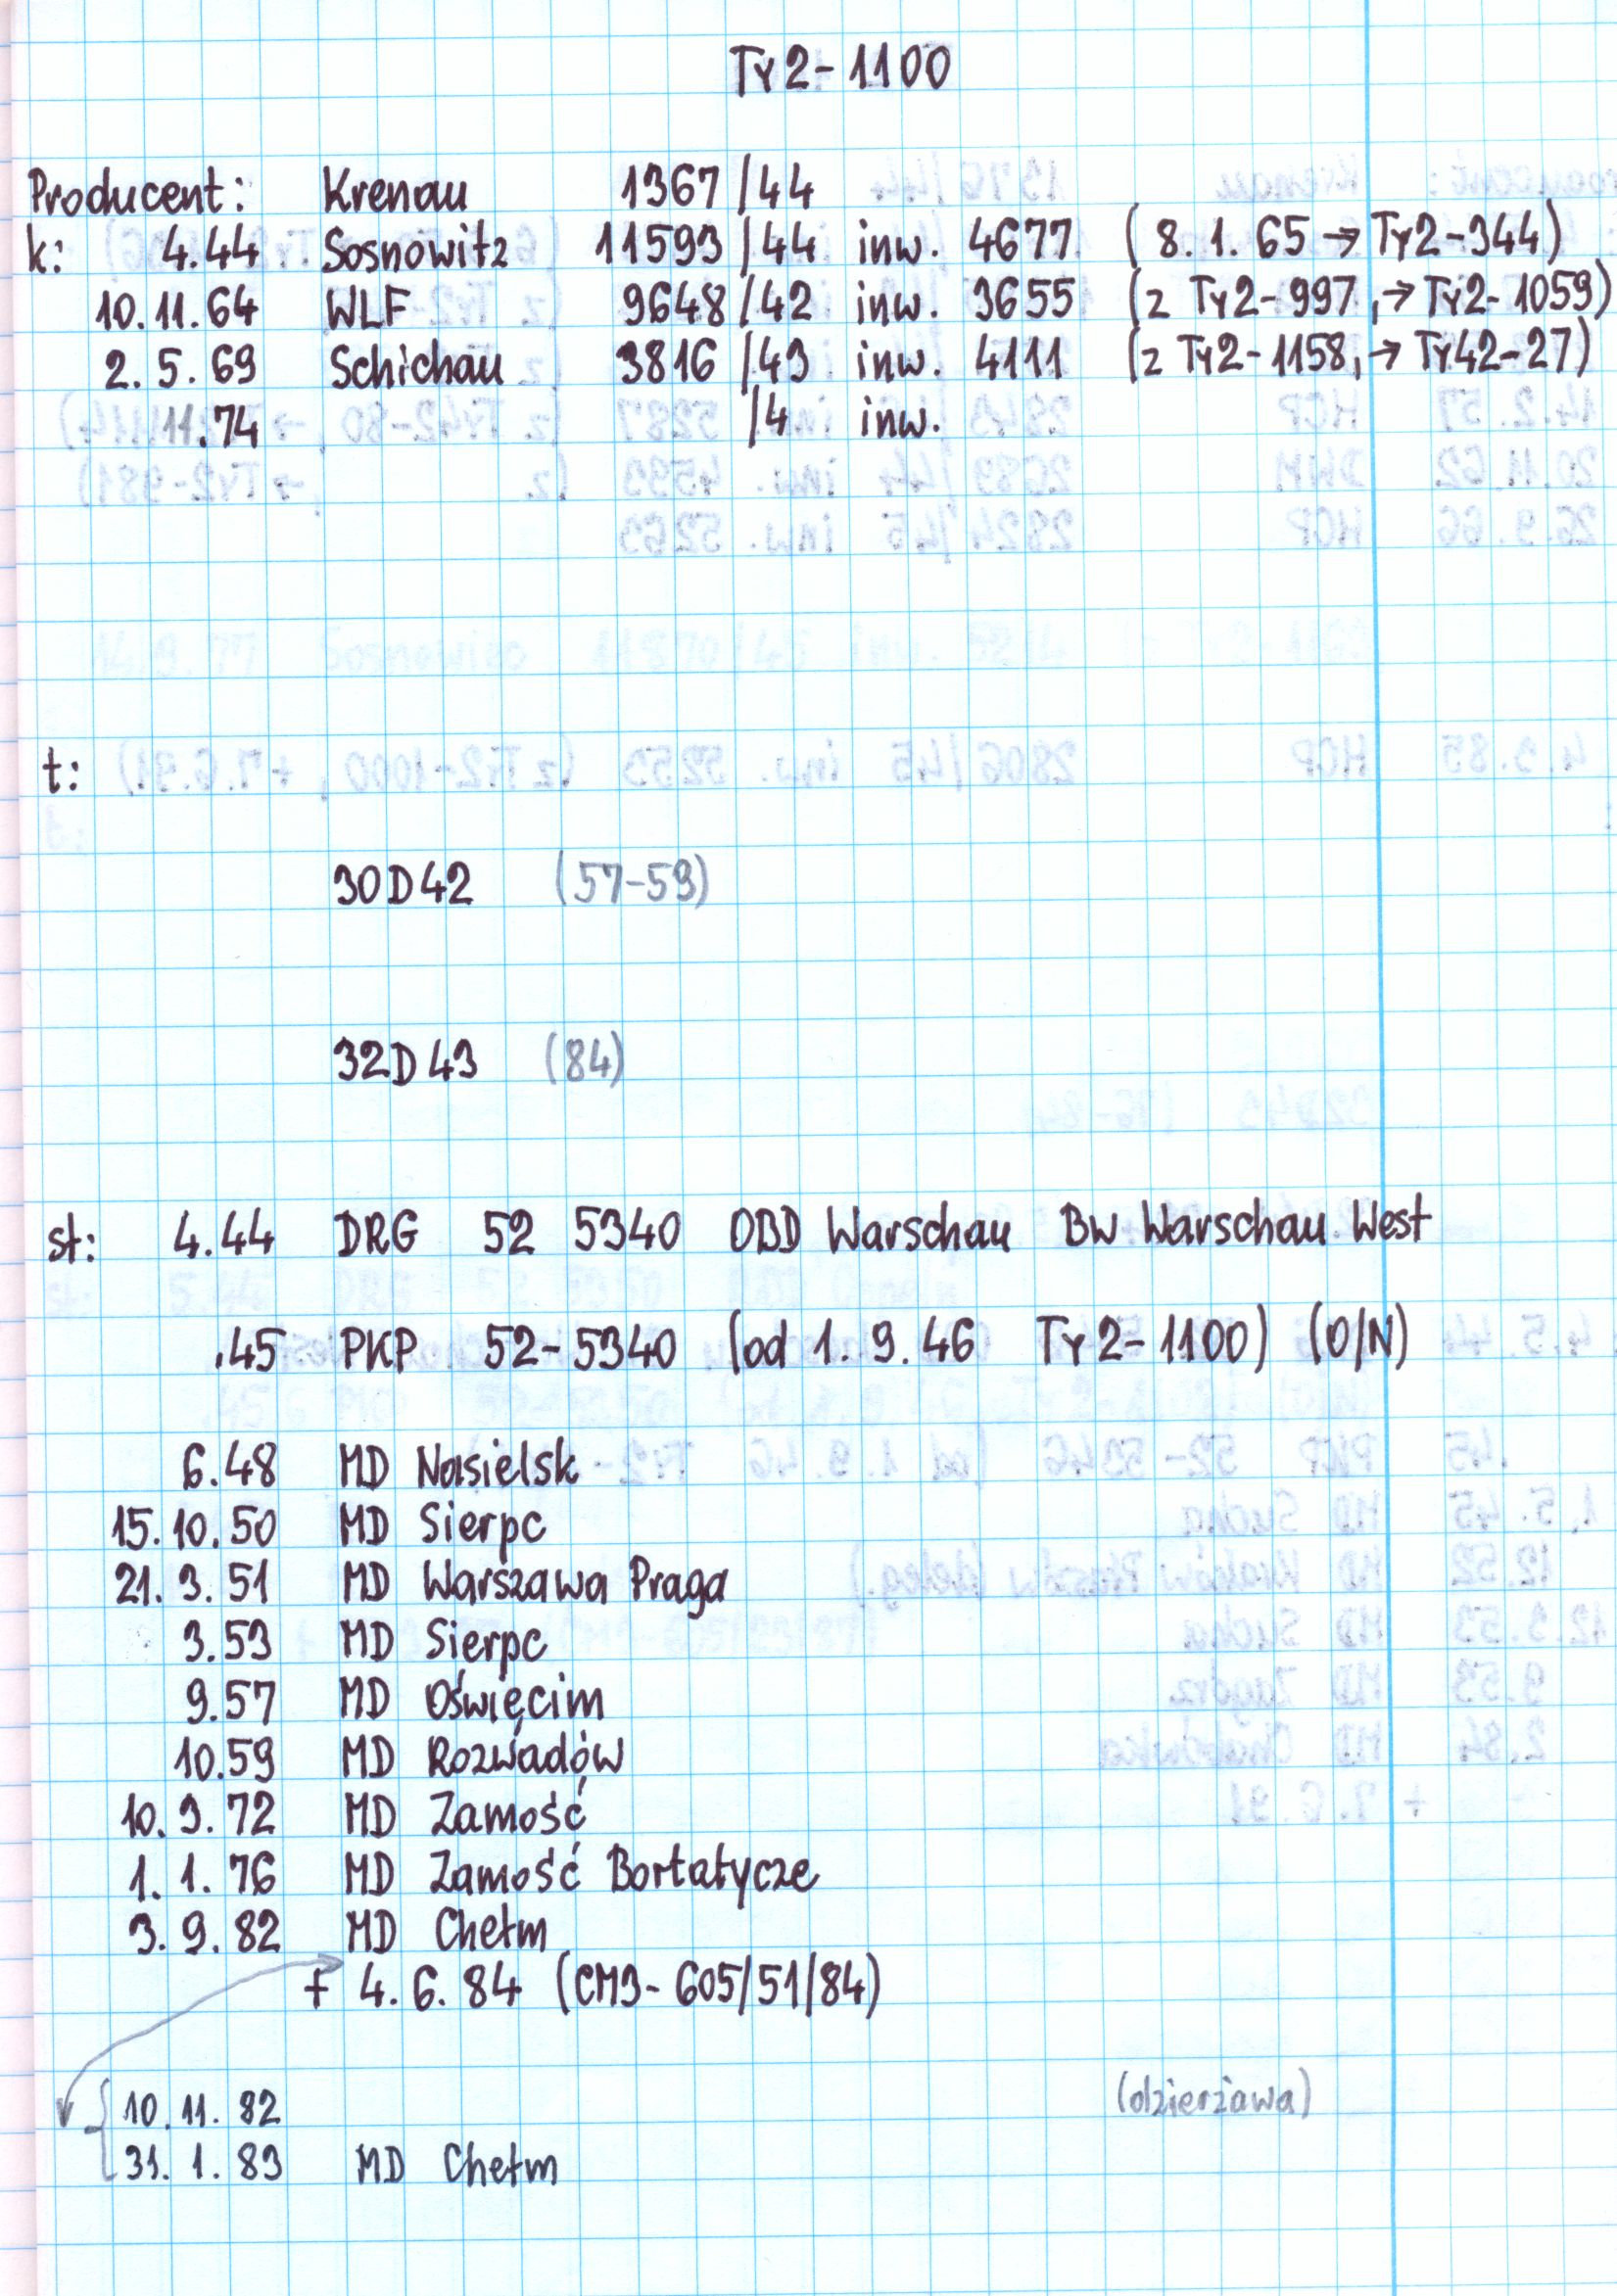 Ty2-1100
Producent: Krenau 1367/44
k: 4.44 Sosnowitz 11593/44 inw. 4677 (8.1.65 → Ty2-344)
10.11.64 WLF 9648/42 inw. 3655 (z Ty2-997, → Ty2-1059)
2.5.69 Schichau 3816/43 inw. 4111 (z Ty2-1158, → Ty42-27)
11.74 /4 inw.
t:
30D42 (57-59)
32D43 (84)
st: 4.44 DRG 52 5340 OBD Warschau BW Warschau West
.45 PKP 52-5340 (od 1.9.46 Ty2-1100) (O/N)
6.48 MD Nasielsk
15.10.50 MD Sierpc
21.3.51 MD Warszawa Praga
3.53 MD Sierpc
9.57 MD Oświęcim
10.59 MD Rozwadów
10.9.72 MD Zamość
1.1.76 MD Zamość Bortatycze
3.9.82 MD Chełm
+ 4.6.84 (CM3-605/51/84)
10.11.82 (dzierżawa)
31.1.83 MD Chełm